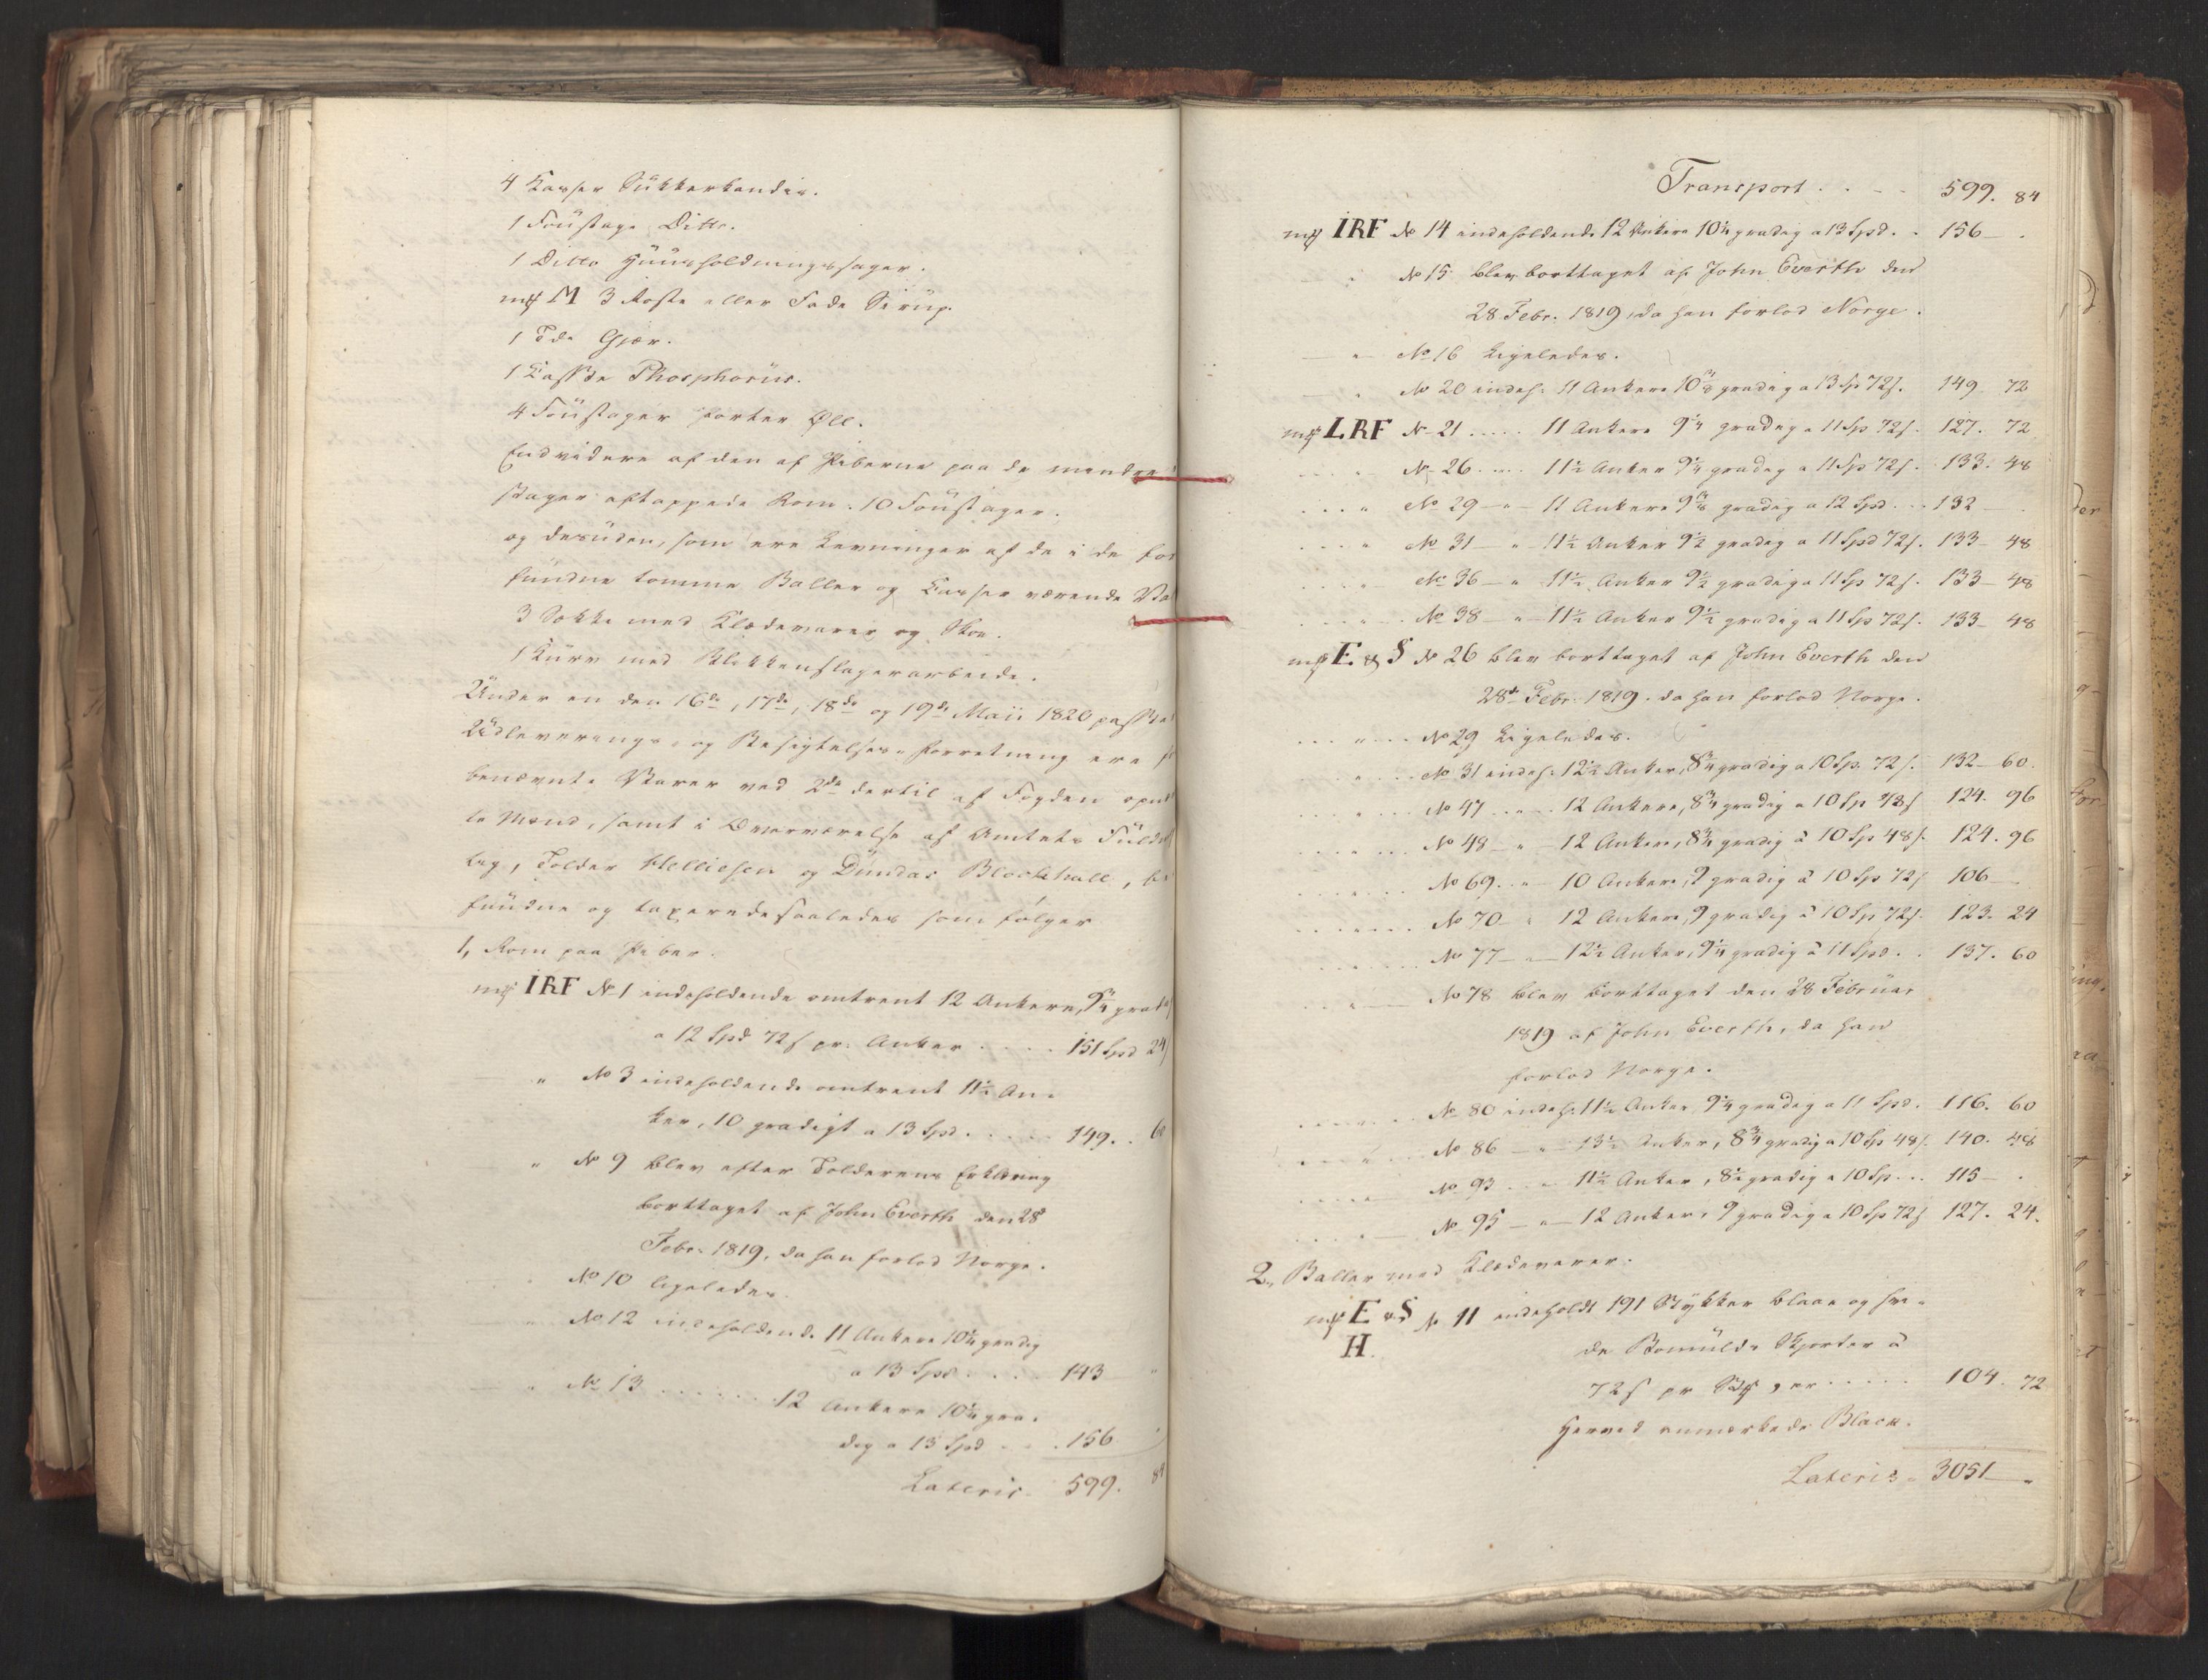 4 Kasser Sukkerkandis.
1 Foustage Ditto.
1 Ditto Huusholdningssager.
mrk M 3 Foste eller Fade Sirup.
1 Tde Gjær.
1 Kasse Phosphorus.
4 Foustager porter Øll.
Endvidere af den af Piberne paa de mindre
stager aftappede Rom. 10 Foustager.
og desuden, som ere Levninger af de i de for
fundne tomme Baller og Kasser værende Va
3 Sække med Klædevarer og Skoe.
1 Kurv med Blikkenslagerarbeide.
Under en den 16de, 17de, 18de og 19de Maii 1820 passe
Udleverings- og Besigtelses-Forretning ere
benævnte Varer ved 2de dertil af Fogden opnæ
te Mænd, samt i Overværelse af Amtets Fuld
tig, Tolder Helliesen og Dundas Blackhall, be
fundne og taxerede saaledes som følger
1, Rom paa Piber.
mrk IRF No 1 indeholdende omtrent 12 Ankere, 9¾ grad
a 12 Spd 72 s pr. Anker .... 151 Spd 24
" No 3 indeholdende omtrent 11½ An-
ker, 10 gradigt a 13 Spd. .... 149. 60
" No 9 blev efter Tolderens Erklæring
borttaget af John Everth den 28
Febr. 1819, da han forlod Norge.
No 10 ligeledes.
" No 12 indeholdende 11 Ankere 10¼ gradig
a 13 Spd .... 143 "
" No 13 ...... 12 Ankere 10¼ gra-
dig a 13 Spd .. 156
Lateris 599. 84
Transport .... 599. 84
mrk IRF No 14 indeholdende 12 Ankere 10¼ gradig a 13 Spd. . 156 — .
No 15 blev borttaget af John Everth den
28 Febr. 1819, da han forlod Norge.
— " — No 16 Ligeledes.
" No 20 indeh: 11 Ankere 10⅜ gradig a 13 Sp 72 s. 149. 72
mrk LRF No 21 ..... 11 Ankere 9¼ gradig a 11 Sp 72 s. 127. 72
No 26 .... 11½ Anker 9¼ gradig a 11 Sp 72 s. 133. 48
.... " No 29 — " — 11 Ankere 9⅜ gradig a 12 Spd ... 132 — .
.... " No 31 — " — 11½ Anker 9½ gradig a 11 Spd 72 s. 133 — 48
" No 36 — " — 11½ Anker 9½ gradig a 11 Sp 72 s. 133 — 48
No 38 — " — 11½ Anker 9½ gradig a 11 Sp 72 s. 133 — 48
mrk E & S No 26 blev borttaget af John Everth den
28de Febr. 1819. da han forlod Norge.
... " ... No 29 Ligeledes.
" ... No 31 indeh: 12½ Anker, 8¾ gradig a 10 Sp. 72 s. 132 — 60.
No 47 .. " . 12 Ankere, 8¾ gradig a 10 Sp 48 s 124. 96
No 48 — " — 12 Ankere, 8¾ gradig à 10 Sp 48 s. 124. 96
No 69. . " — 10 Ankere, 9 gradig à 10 Sp 72 s 106 —
No 70 — " 12 Ankere, 9 gradig à 10 Sp 72 s. 123. 24
No 77 — " — 12½ Anker, 9¼ gradig à 11 Spd. . 137. 60
No 78 blev borttaget den 28 Februar
1819 af John Everth, da han
forlod Norge.
No 80 indeh: 11½ Anker 9¼ gradig a 11 Spd. 116. 60
No 86 — " — 13½ Anker, 8¾ gradig a 10 Sp 48 s. 140. 48
No 93 .. " 11½ Anker, 8½ gradig a 10 Sp... 115 — .
No 95 — " — 12 Anker, 9 gradig a 10 Sp 72 s 127. 24.
2, Baller med Klædevarer.
mrk E & S No 11 indeholdt 191 Stykker blaae og hvi-
H. de Bomulds Skjorter à
72 s pr Stk, er ..... 104. 72
Herved anmærkede Black.
Lateris - 3051 — "